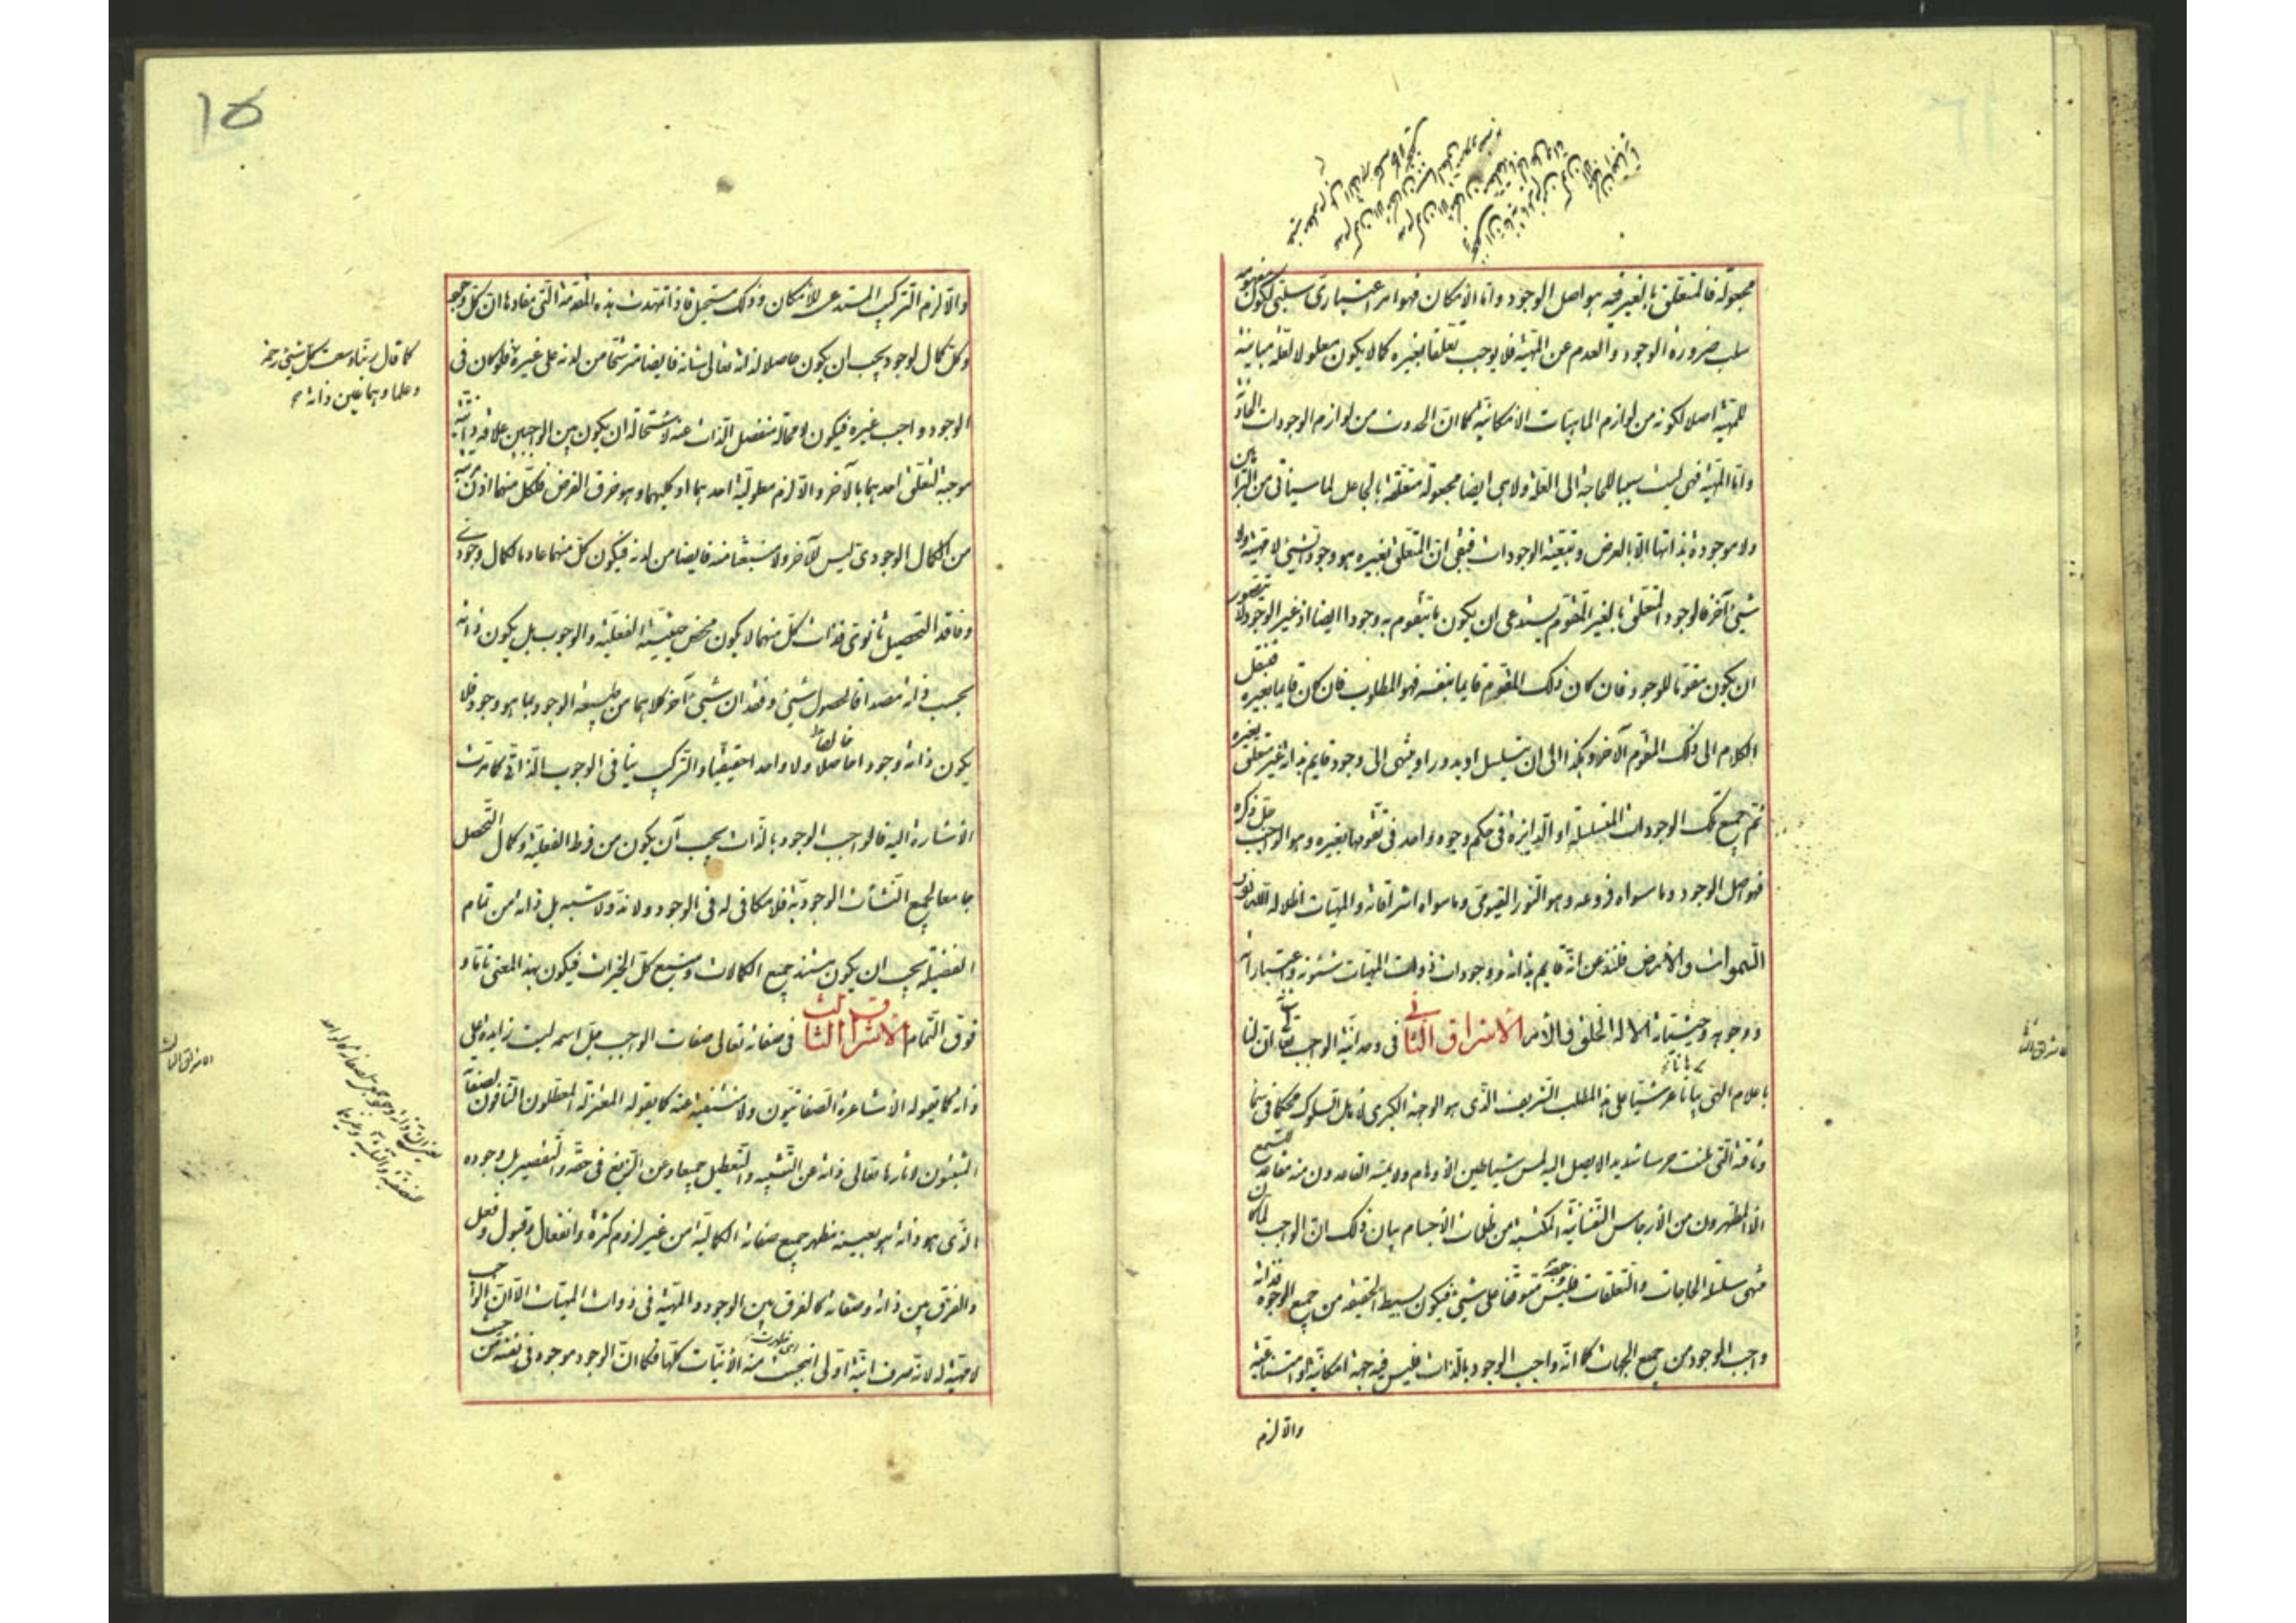 مجعولة فالمتعلق بالغير فيه هو اصل الوجود واما الامكان فهو امر اعتبارى سلبى لكون مفهومه
سلب ضرورة الوجود والعدم عن المهية فلا يوجب تعلقا بغيره كما لا يكون معلولا لعلة مباينة
للمهية اصلا لكونه من لوازم الماهيات الامكانية كما ان الحدوث من لوازم الوجودات الحادثة
واما المهية فهى ليست سببا للحاجة الى العلة ولا هى ايضا مجعولة متعلقة بالجاعل لما سياتى من البراهين
ولا موجودة بذاتها الا بالعرض وبتبعية الوجودات فبقى ان المتعلق بغيره هو وجود الشيئ لا مهيته ولا
شيئ آخر فالوجود المتعلق بالغير المتقوم به يستدعى ان يكون ما يتقوم به وجودا ايضا اذ غير الوجود لا يتصور
ان يكون مقوما للوجود فان كان ذلك المقوم قايما بنفسه فهو المطلوب فان كان قايما بغيره فننقل
الكلام الى ذلك المقوم الآخر وهكذا الى ان يتسلسل او يدور او ينتهى الى وجود قايم بذاته غير متعلق بغيره
ثم جميع تلك الوجودات المتسلسلة او الدايرة فى حكم وجود واحد فى تقومها بغيره وهو الواجب جل ذكره
فهو اصل الوجود وما سواه فروعه وهو النور القيومى وما سواه اشراقاته والمهيات اظلاله الله نور
السموات والارض فلنذعن انه قايم بذاته ووجودات ذوات المهيات شئونه واعتباراته
ووجوهه وحيثياته الا له الخلق والامر الاشراق الثانى فى وحدانية الواجب تعالى ان لنا
باعلام الهى برهانا عرشيا على هذا المطلب الشريف الذى هو الوجهة الكبرى لاهل السلوك محكما فى سماء
وثاقة التى ملئت حرسا شديدا لا يصل اليه لمس شياطين الاوهام ولا يمسه القاعدون منه مقاعد للسمع
الا المطهرون من الارجاس النفسانية المكتسبة من ظلمات الاجسام بيان ذلك ان الواجب لما كان
منتهى سلسلة الحاجات والتعلقات فليس متوقفا على شيئ فيكون بسيط الحقيقة من جميع الوجوه فذاته
واجب الوجود من جميع الجهات كما انه واجب الوجود بالذات فليس فيه جهة امكانية او امتناعية
والا لزم
والا لزم التركيب المستدعى للامكان وذلك مستحيل فاذا تمهدت هذه المقدمة التى مفادها ان كل وجود
وكل كمال لوجود يجب ان يكون حاصلا لذاته تعالى شانه فايضا مترشحا من لدنه على غيره فلو كان فى
الوجود واجب غيره فيكون لا محالة منفصل الذات عنه لاستحالة ان يكون بين الواجبين علاقة ذاتية
موجبة لتعلق احدهما بالآخر والا لزم معلولية احدهما او كليهما وهو خرق الفرض فلكل منهما اذن مرتبة
من الكمال الوجودى ليس للآخر ولا منبعثا منه فايضا من لدنه فيكون كل منهما عادما لكمال وجودى
وفاقدا لتحصيل ثانوى فذات كل منهما لا يكون محض حيثية الفعلية والوجوب بل يكون ذاته
بحسب ذاته مصداقا لحصول شيئ وفقدان شيئ آخر كلاهما من طبيعة الوجود بما هو وجود فلا
يكون ذاته وجودا خالصا ولا واحدا حقيقيا والتركيب ينافى الوجوب الذاتى كما مرت
الاشارة اليه فالواجب الوجود بالذات يجب ان يكون من فرط الفعلية وكمال التحصل
جامعا لجميع النشآت الوجودية فلا مكافى له فى الوجود ولا ند ولا شبه بل ذاته من تمام
الفضيلة يجب ان يكون مستند جميع الكمالات ومنبع كل الخيرات فيكون بهذا المعنى تاما و
فوق التمام الاشراق الثالث فى صفاته تعالى صفات الواجب جل اسمه ليست زايدة على
ذاته كما يقوله الاشاعرة الصفاتيون ولا منتفية عنه كما يقوله المعتزلة المعطلون النافون لصفاته
المثبتون لآثارها تعالى ذاته عن التشبيه والتعطيل جميعا وعن الزيغ فى حقه والتقصير بل وجوده
الذى هو ذاته هو بعينه مظهر جميع صفاته الكمالية من غير لزوم كثرة وانفعال وقبول وفعل
والفرق بين ذاته وصفاته كالفرق بين الوجود والمهية فى ذوات المهيات الا ان الواجب
لا مهية له لانه صرف انية اولى انبجست منه الانيات كلها فكما ان الوجود موجود فى نفسه من حيث
كما قال ربنا وسعت كل شيئ رحمة
وعلما وهما عين ذاته
الاشراق الثالث